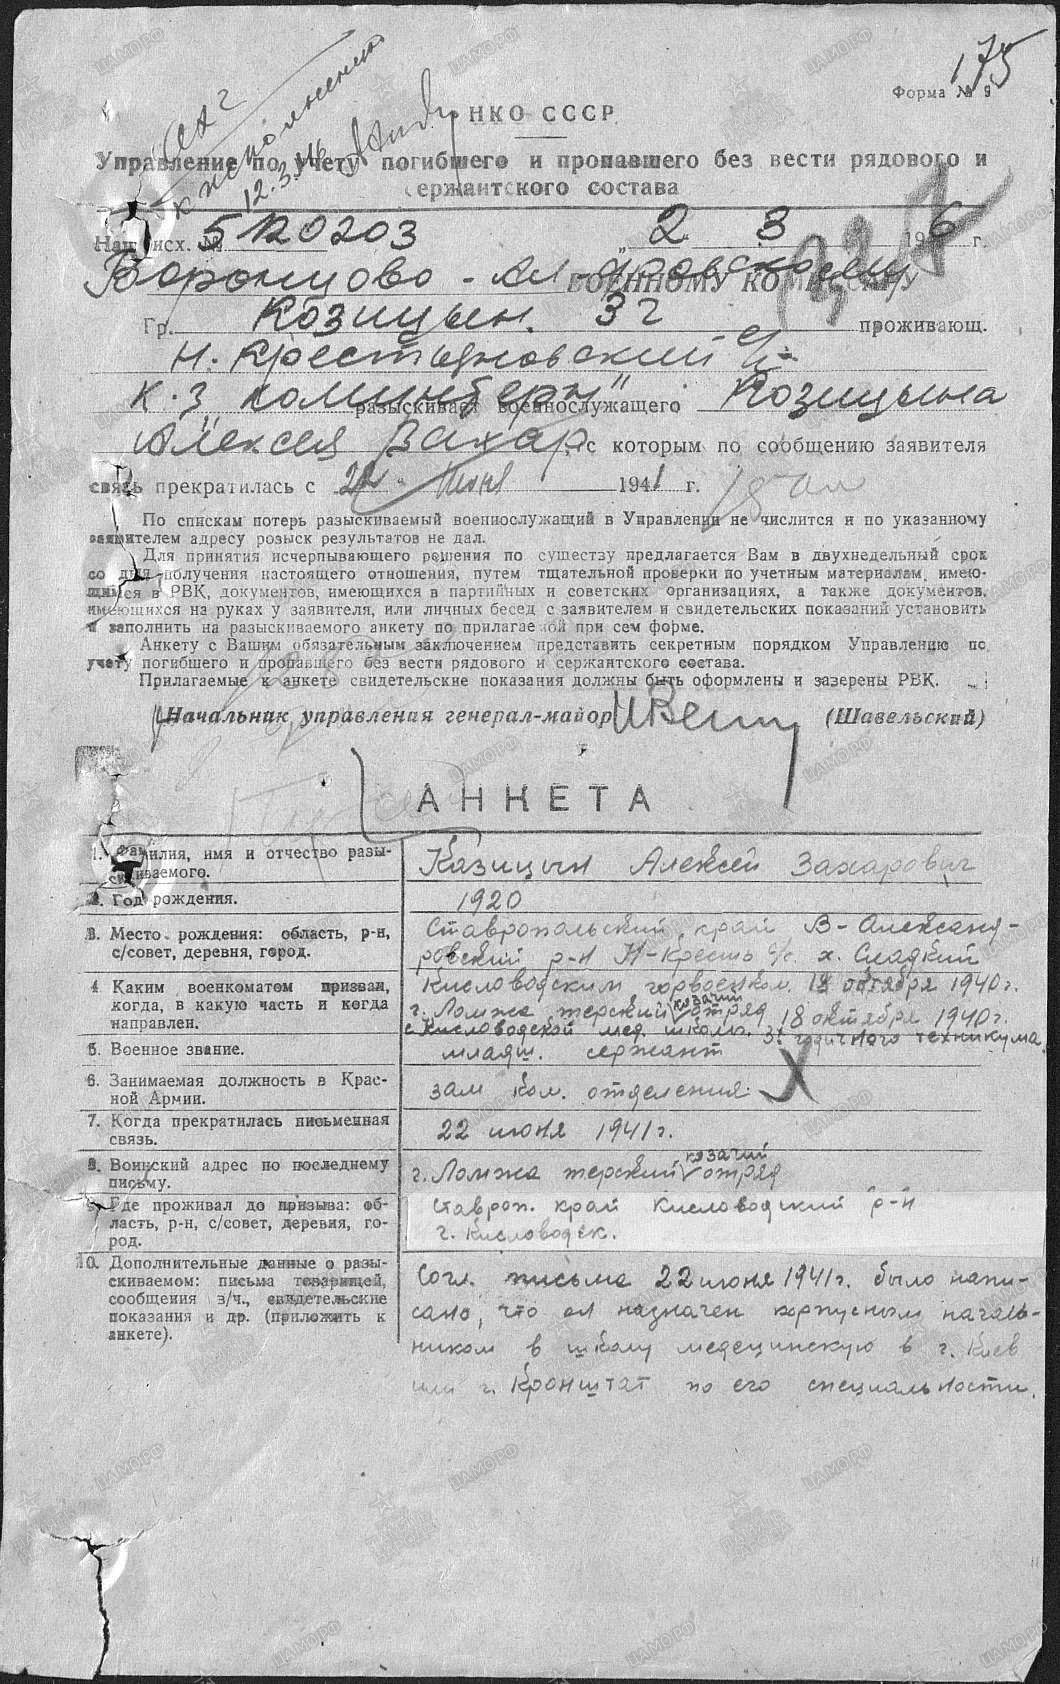 175
Форма № 9
к исполнению
12.3.46
НКО СССР
Управление по учету погибшего и пропавшего без вести рядового и
сержантского состава
Наш исх. № 5120203 „2 3 1946 г.
Воронцово-Ал-дровскому ВОЕННОМУ КОМИССАРУ
Гр. Козицын. З Г проживающ.
Н. Крестьяновский с/с
к-з „коминтерн" разыскивает военнослужащего Козицына
Алексея Захар, с которым по сообщению заявителя
связь прекратилась с 22. Июня 1941 г.
По спискам потерь разыскиваемый военнослужащий в Управлении не числится и по указанному
заявителем адресу розыск результатов не дал.
Для принятия исчерпывающего решения по существу предлагается Вам в двухнедельный срок
со дня получения настоящего отношения, путем тщательной проверки по учетным материалам, имею-
щимся в РВК, документов, имеющихся в партийных и советских организациях, а также документов,
имеющихся на руках у заявителя, или личных бесед с заявителем и свидетельских показаний установить
и заполнить на разыскиваемого анкету по прилагаемой при сем форме.
Анкету с Вашим обязательным заключением представить секретным порядком Управлению по
учету погибшего и пропавшего без вести рядового и сержантского состава.
Прилагаемые к анкете свидетельские показания должны быть оформлены и заверены РВК.
Начальник управления генерал-майор (Шавельский)
АНКЕТА
1. Фамилия, имя и отчество разы-
скиваемого.
Казицын Алексей Захарович
2. Год рождения.
1920
3. Место рождения: область, р-н,
с/совет, деревня, город.
Ставропольский край В-Александ-
ровский р-н Н-Кресть с/с х. Сладкий
4. Каким военкоматом призван,
когда, в какую часть и когда
направлен.
Кисловодским горвоенком. 18 октября 1940г.
г. Ломжа терский казачий отряд 18 октября 1940г.
с Кисловодской мед. школы. 3х годичного техникума
5. Военное звание.
младш. сержант
6. Занимаемая должность в Крас-
ной Армии.
зам ком. отделения
7. Когда прекратилась письменная
связь.
22 июня 1941г.
8. Воинский адрес по последнему
письму.
г. Ломжа терский казачий отряд
9. Где проживал до призыва: об-
ласть, р-н, с/совет, деревня, го-
род.
Ставроп. край Кисловодский р-н
г. Кисловодск.
10. Дополнительные данные о разы-
скиваемом: письма товарищей,
сообщения в/ч., свидетельские
показания и др. (приложить к
анкете).
Согл. письма 22 июня 1941г. было напи-
сано, что он назначен корпусным началь-
ником в школу медецинскую в г. Киев
или г. Кронштат по его специальности.